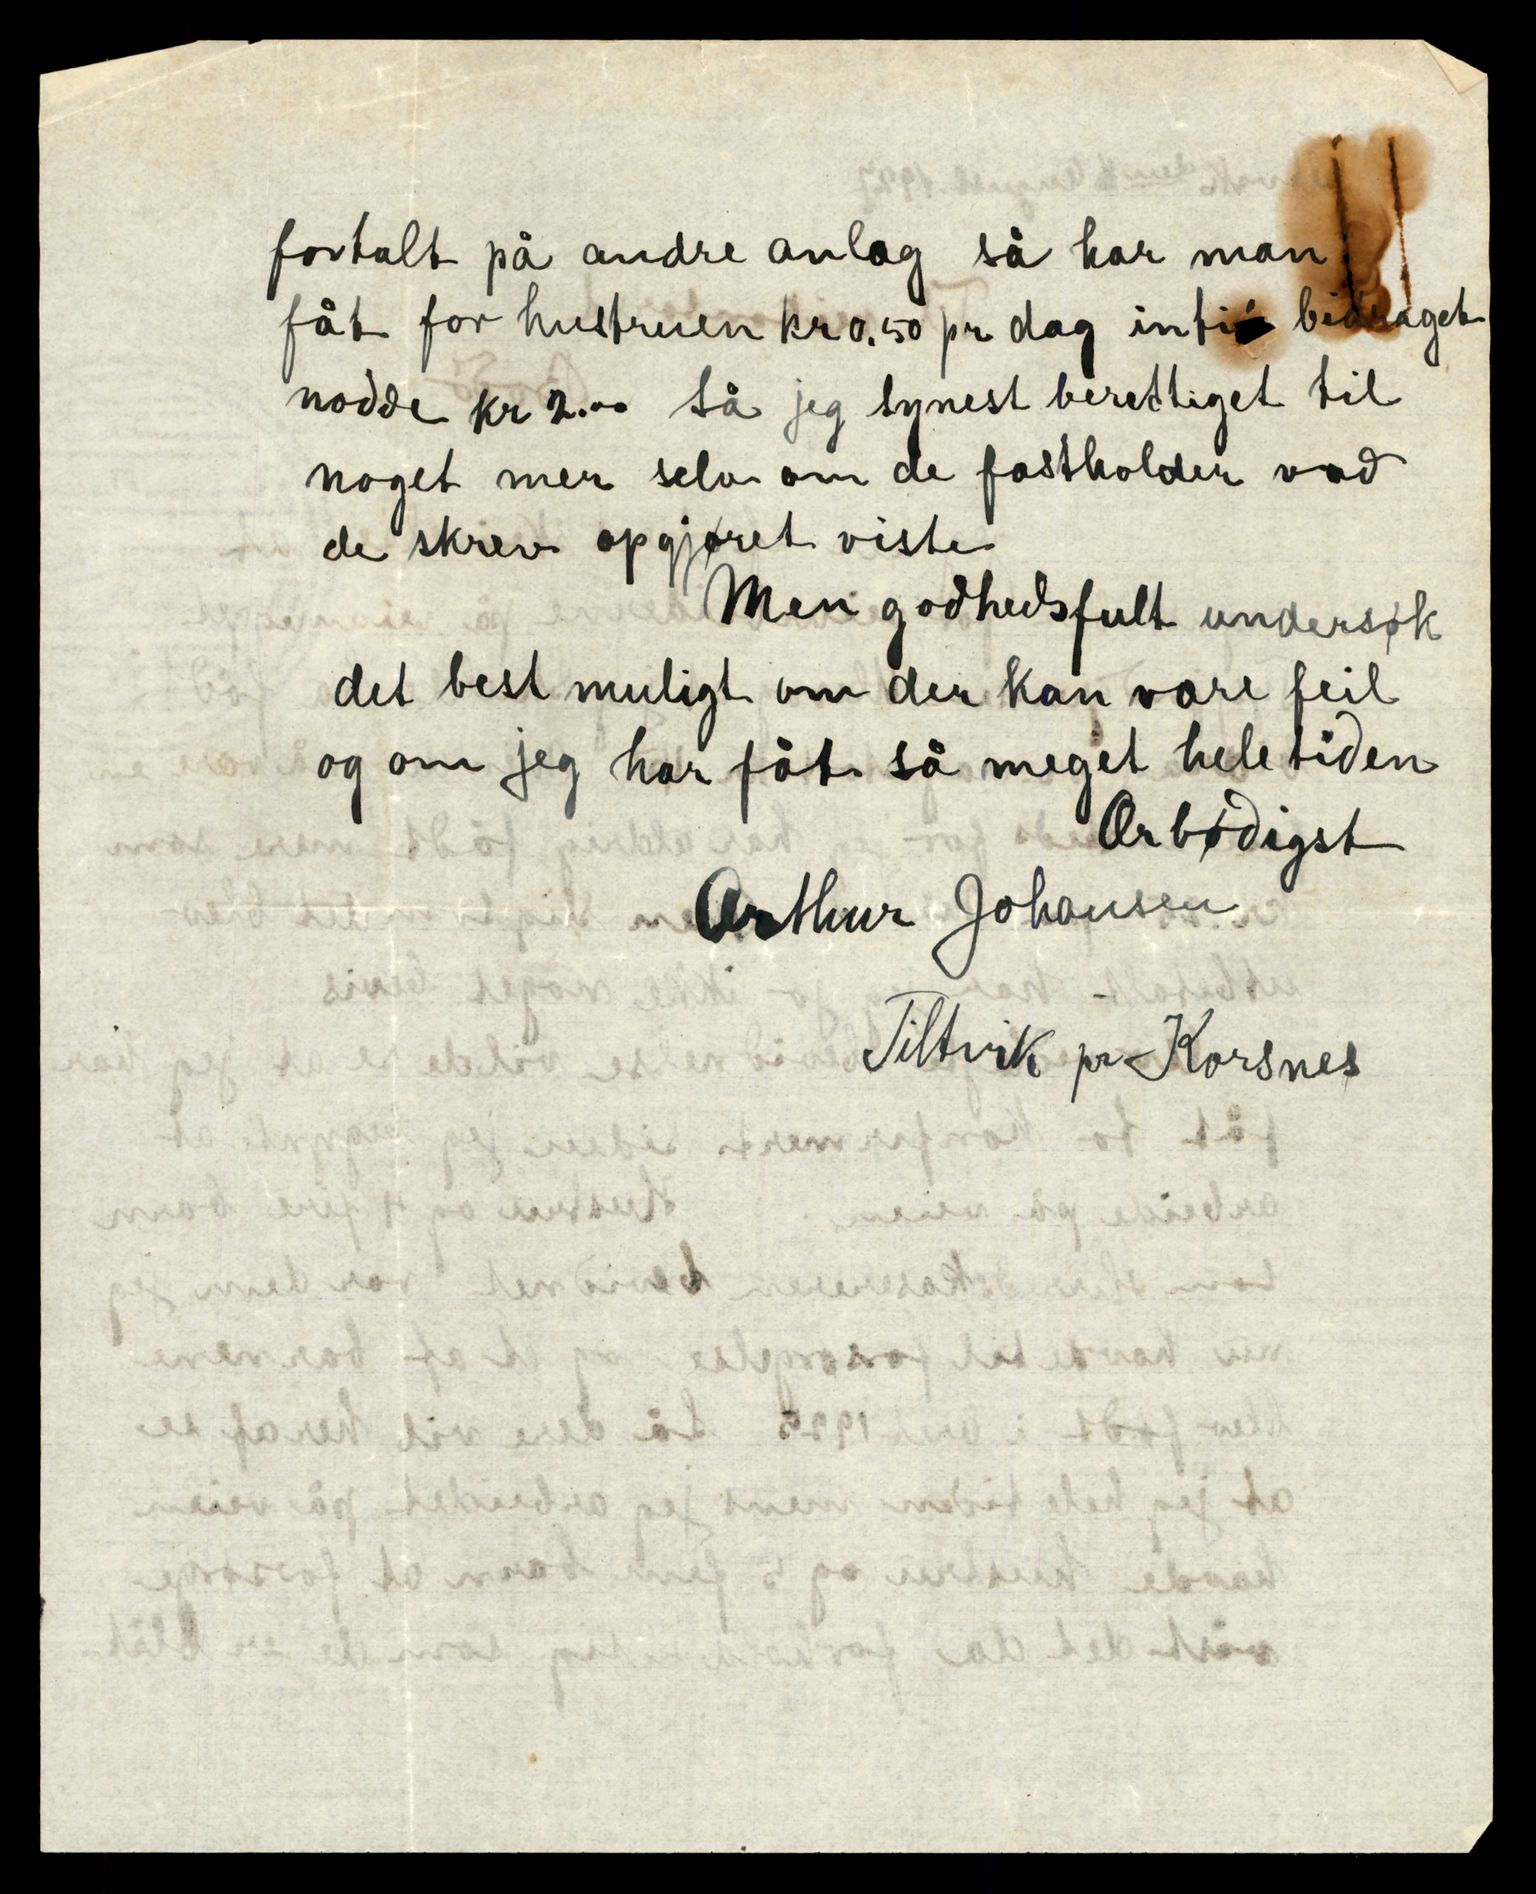 fortalt på andre anlæg så har man
fåt for hustruen kr 0.50 pr dag inti bidraget
nådde kr 2.00 så jeg synest berettiget til
noget mer selv om de fastholder vad
de skrev opgjøret viste
Men godhedsfult undersøk
det best muligt om der kan være feil
og om jeg har fåt så meget hele tiden
Ærbødigst
Arthur Johansen
Tiltvik pr Korsnes